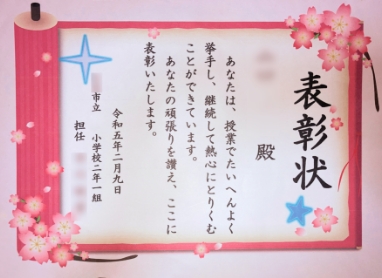 表彰状
殿
あなたは、授業でたいへんよく
挙手し、継続して熱心にとりくむ
ことができています。
あなたの頑張りを讃え、ここに
表彰いたします。
令和五年二月九日
市立 小学校二年一組
担任